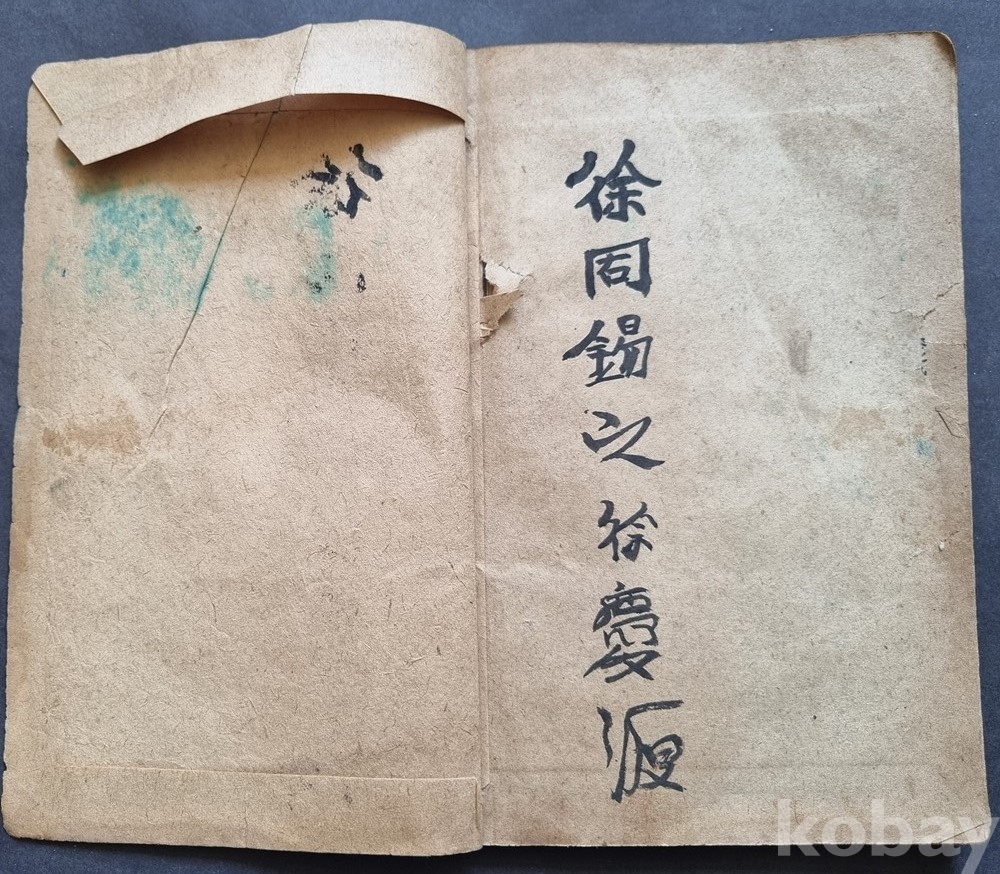 徐同錫之徐慶源
kobay